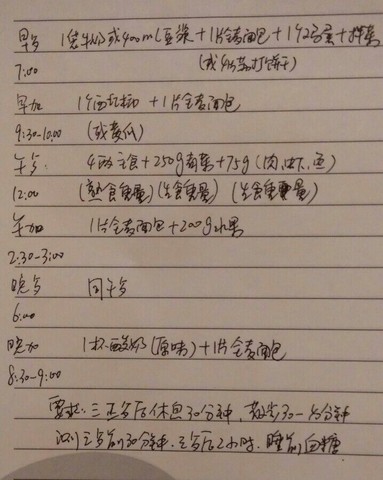 早多 1袋牛奶或400ml豆浆+1片全麦面包+1个鸡蛋+拌菜
7:00 (或4片苏打饼干)
早加 1个西红柿+1片全麦面包
9:30-10:00 (或黄瓜)
午多: 4两主食+250g蔬菜+75g(肉,虾,鱼)
12:00 (熟食重量)(生食重量)(生食重量)
午加 1片全麦面包+200g水果
2:30-3:00
晚多 同午多
6:00
晚加 1杯酸奶(原味)+1片全麦面包
8:30-9:00
要求: 三正多后休息30分钟, 散步30-40分钟
测三多前30分钟, 三多后2小时, 睡前血糖